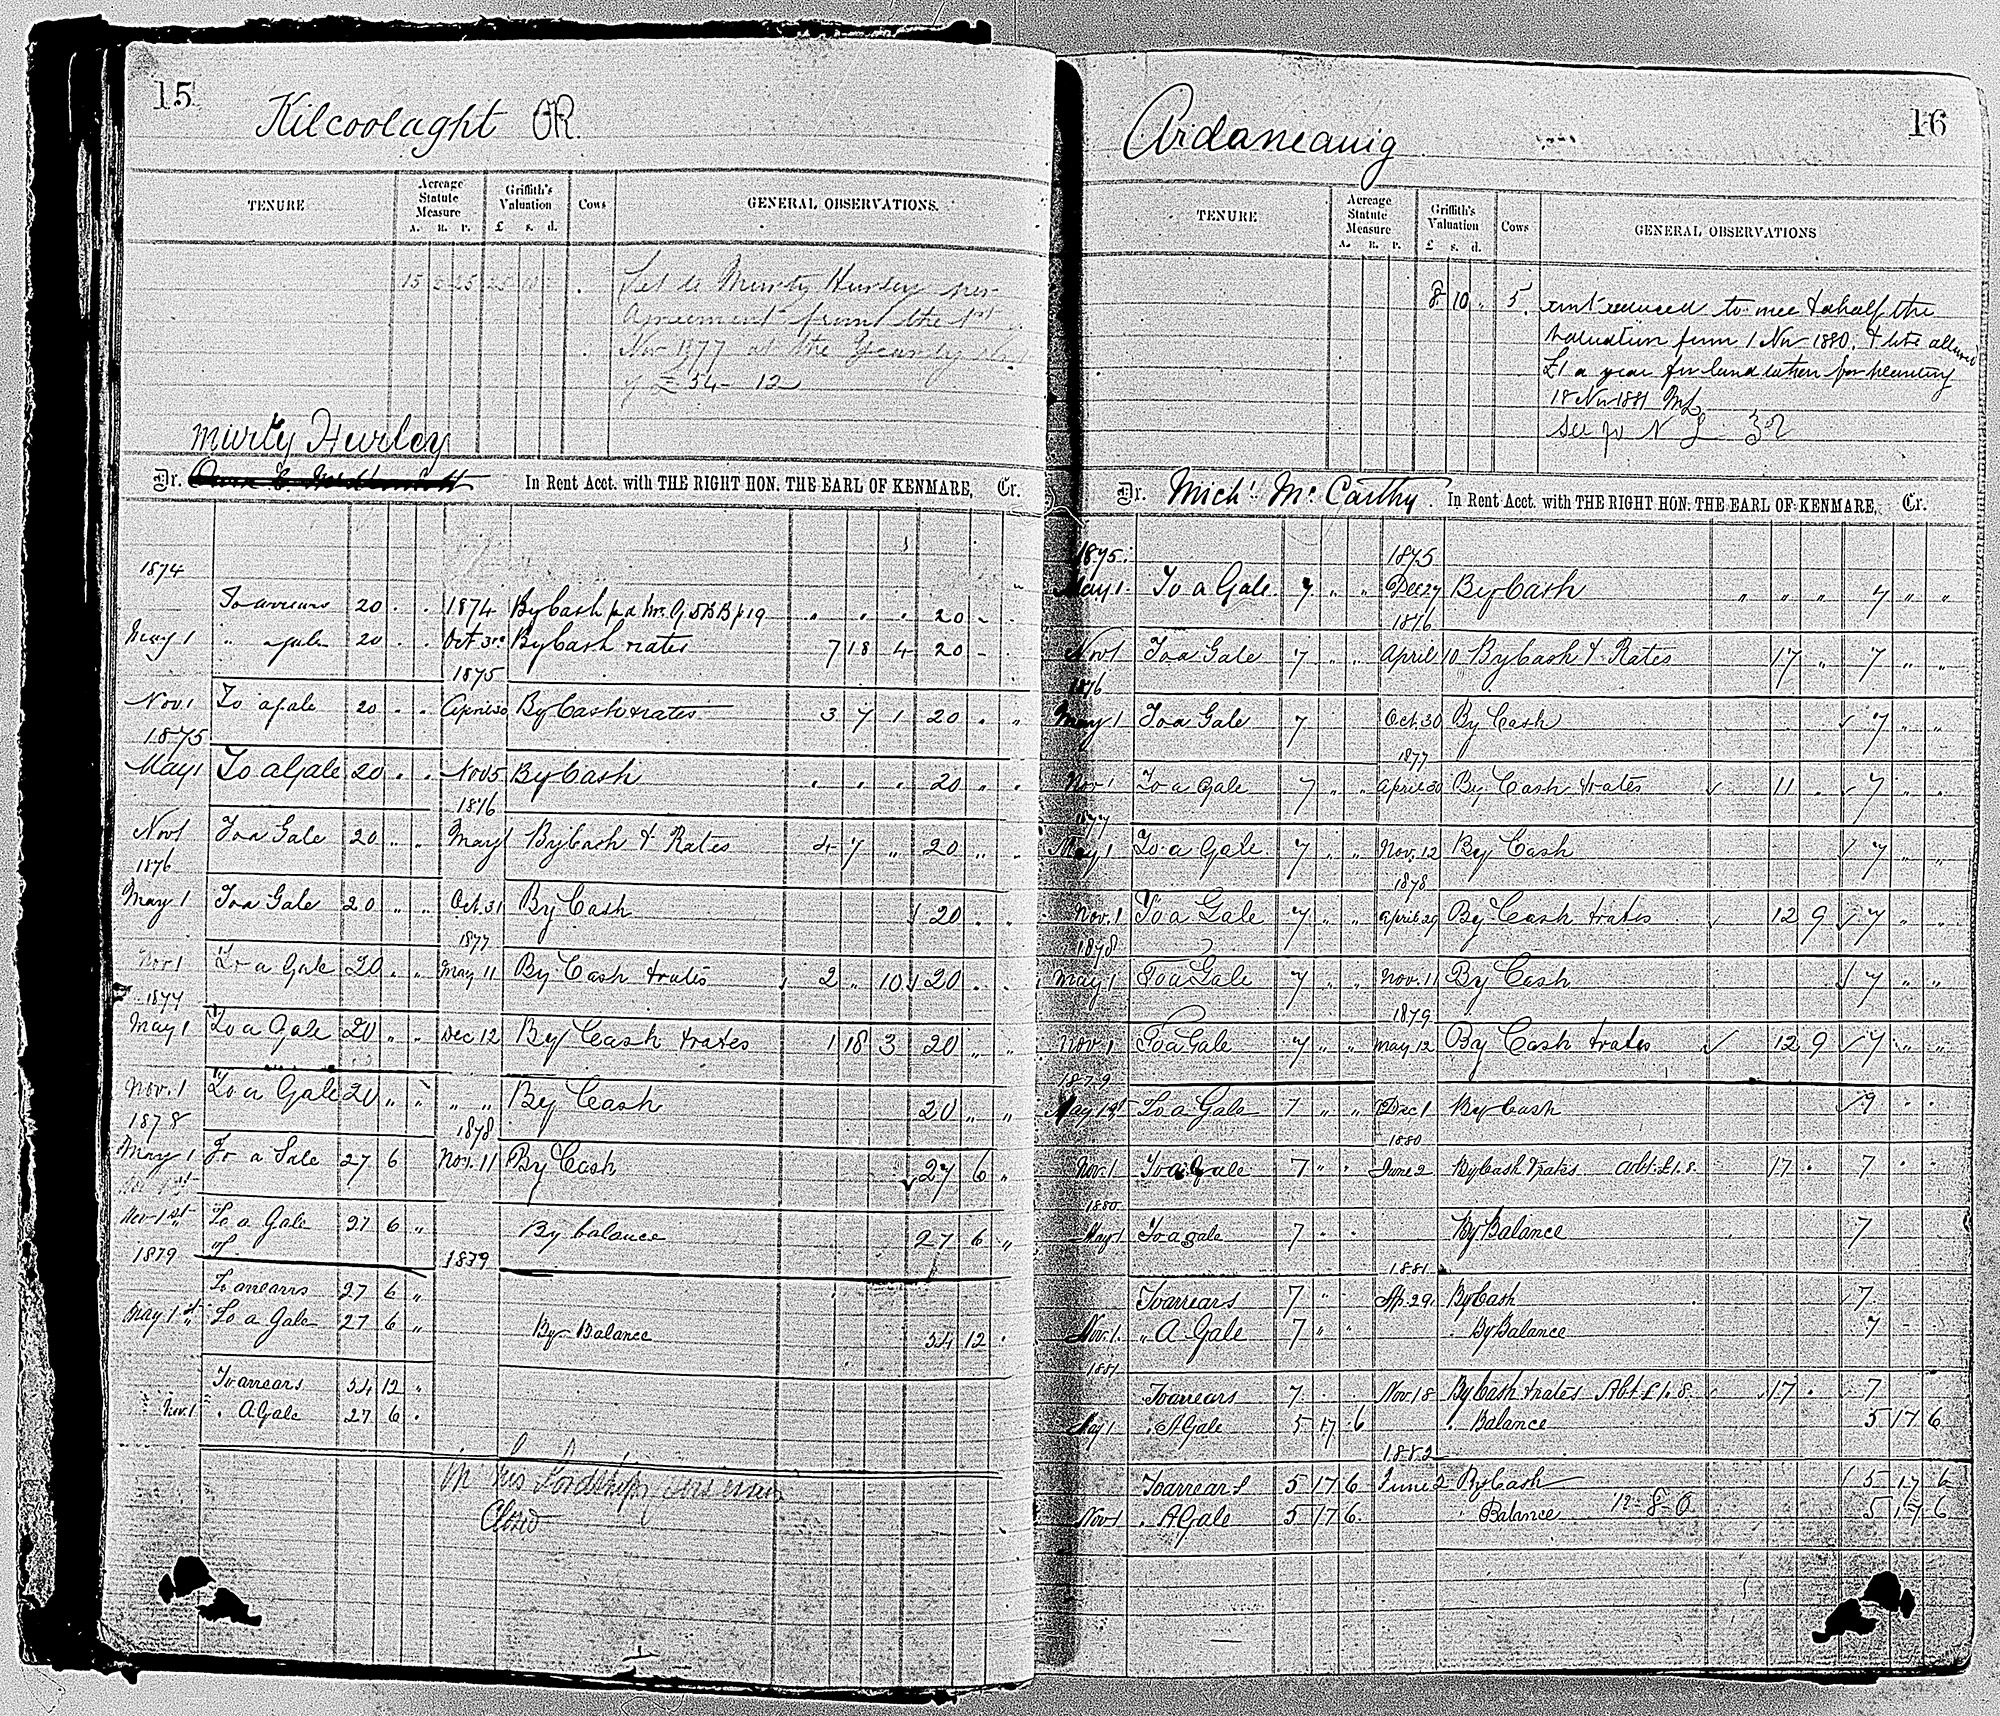 15
Kilcoolaght OR.
TENURE
Acreage Statute Measure
A. R. P.
Griffith's Valuation
£ s. d.
Cows
GENERAL OBSERVATIONS.
15 25
Let to Murty Hurley per
Agreement from the 1st
Nov 1877 at the Yearly rent
of £54- 12
Murty Hurley
Dr. In Rent Acct. with THE RIGHT HON. THE EARL OF KENMARE, Cr.
1874
To arrears 20 . . 1874 By Cash pd Mr. G 5 B p19 " " " 20 - .
May 1 " a gale 20 . . Oct 3rd By Cash rates 7 18 4 20 -
1875
Nov. 1 To a gale 20 . . April 30 By Cash & rates 3 7 1 20 . "
1875
May 1 To a Gale 20 . . Nov 5 By Cash . . . 20 . .
1876
Nov 1 To a Gale 20 " " May 1 By Cash & Rates 4 7 " 20 " .
1876
May 1 To a Gale 20 " " Oct. 31 By Cash 20 . .
1877
Nov 1 To a Gale 20 " " May 11 By Cash & rates 2 " 10 20 . .
1877
May 1 To a Gale 20 " " Dec 12 By Cash & rates 1 18 3 20 " "
Nov. 1 To a Gale 20 " " " " By Cash 20 " "
1878 1878
May 1 To a Gale 27 6 Nov. 11 By Cash 27 6 "
Nov 1st To a Gale 27 6 " By balance 27 6 "
1879 1879
To arrears 27 6 "
May 1st To a Gale 27 6 " By Balance 54 12 .
To arrears 54 12 "
Nov. 1 " A Gale 27 6 .
In his Lordships
Closed
16
Ardaneanig
TENURE
Acreage Statute Measure
A. R. P.
Griffith's Valuation
£ s. d.
Cows
GENERAL OBSERVATIONS
8 10 " 5. rent reduced to once & a half the
Valuation from 1 Nov 1880. & to be allowed
£1 a year for land taken for planting
18 Nov 1881 ML
See fo N L 32
Dr. Michl. Mc Carthy. In Rent Acct. with THE RIGHT HON: THE EARL OF KENMARE, Cr.
1875. 1875
May 1. To a Gale. 7 " " Dec 27 By Cash " " " 7 " "
1876
Nov 1 To a Gale 7 " " April 10 By Cash & Rates 17 " 7 " "
1876
May 1 To a Gale 7 Oct. 30 By Cash 7 " "
1877
Nov 1 To a Gale 7 " " April 30 By Cash & rates 11 . 7 " "
1877
May 1 To a Gale 7 " " Nov. 12 By Cash 7 " "
1878
Nov. 1 To a Gale 7 " " April 29 By Cash & rates 12 9 7 " "
1878
May 1 To a Gale 7 " " Nov. 11 By Cash 7 " "
1879
Nov 1 To a Gale 7 " " May 12 By Cash & rates 12 9 7 " "
1879
May 1st To a Gale 7 " " Dec 1 By Cash 7 . .
1880
Nov. 1 To a Gale 7 " . June 2 By Cash & rates abt. £1.8. 17 . 7 . .
1880
May 1 To a gale 7 " . By Balance 7
1881
To arrears 7 " . Ap. 29 By Cash 7
Nov. 1. " A Gale 7 " . " By Balance 7 -
1881
To arrears 7 . . Nov. 18 By Cash & rates Abt. £1.8. 17 . 7
May 1 " A Gale 5 17 6 " Balance 5 17 6
1882
To arrears 5 17 6 June 2 By Cash 5 17 6
Nov 1 " A Gale 5 17 6. " Balance 12-8-0 5 17 6